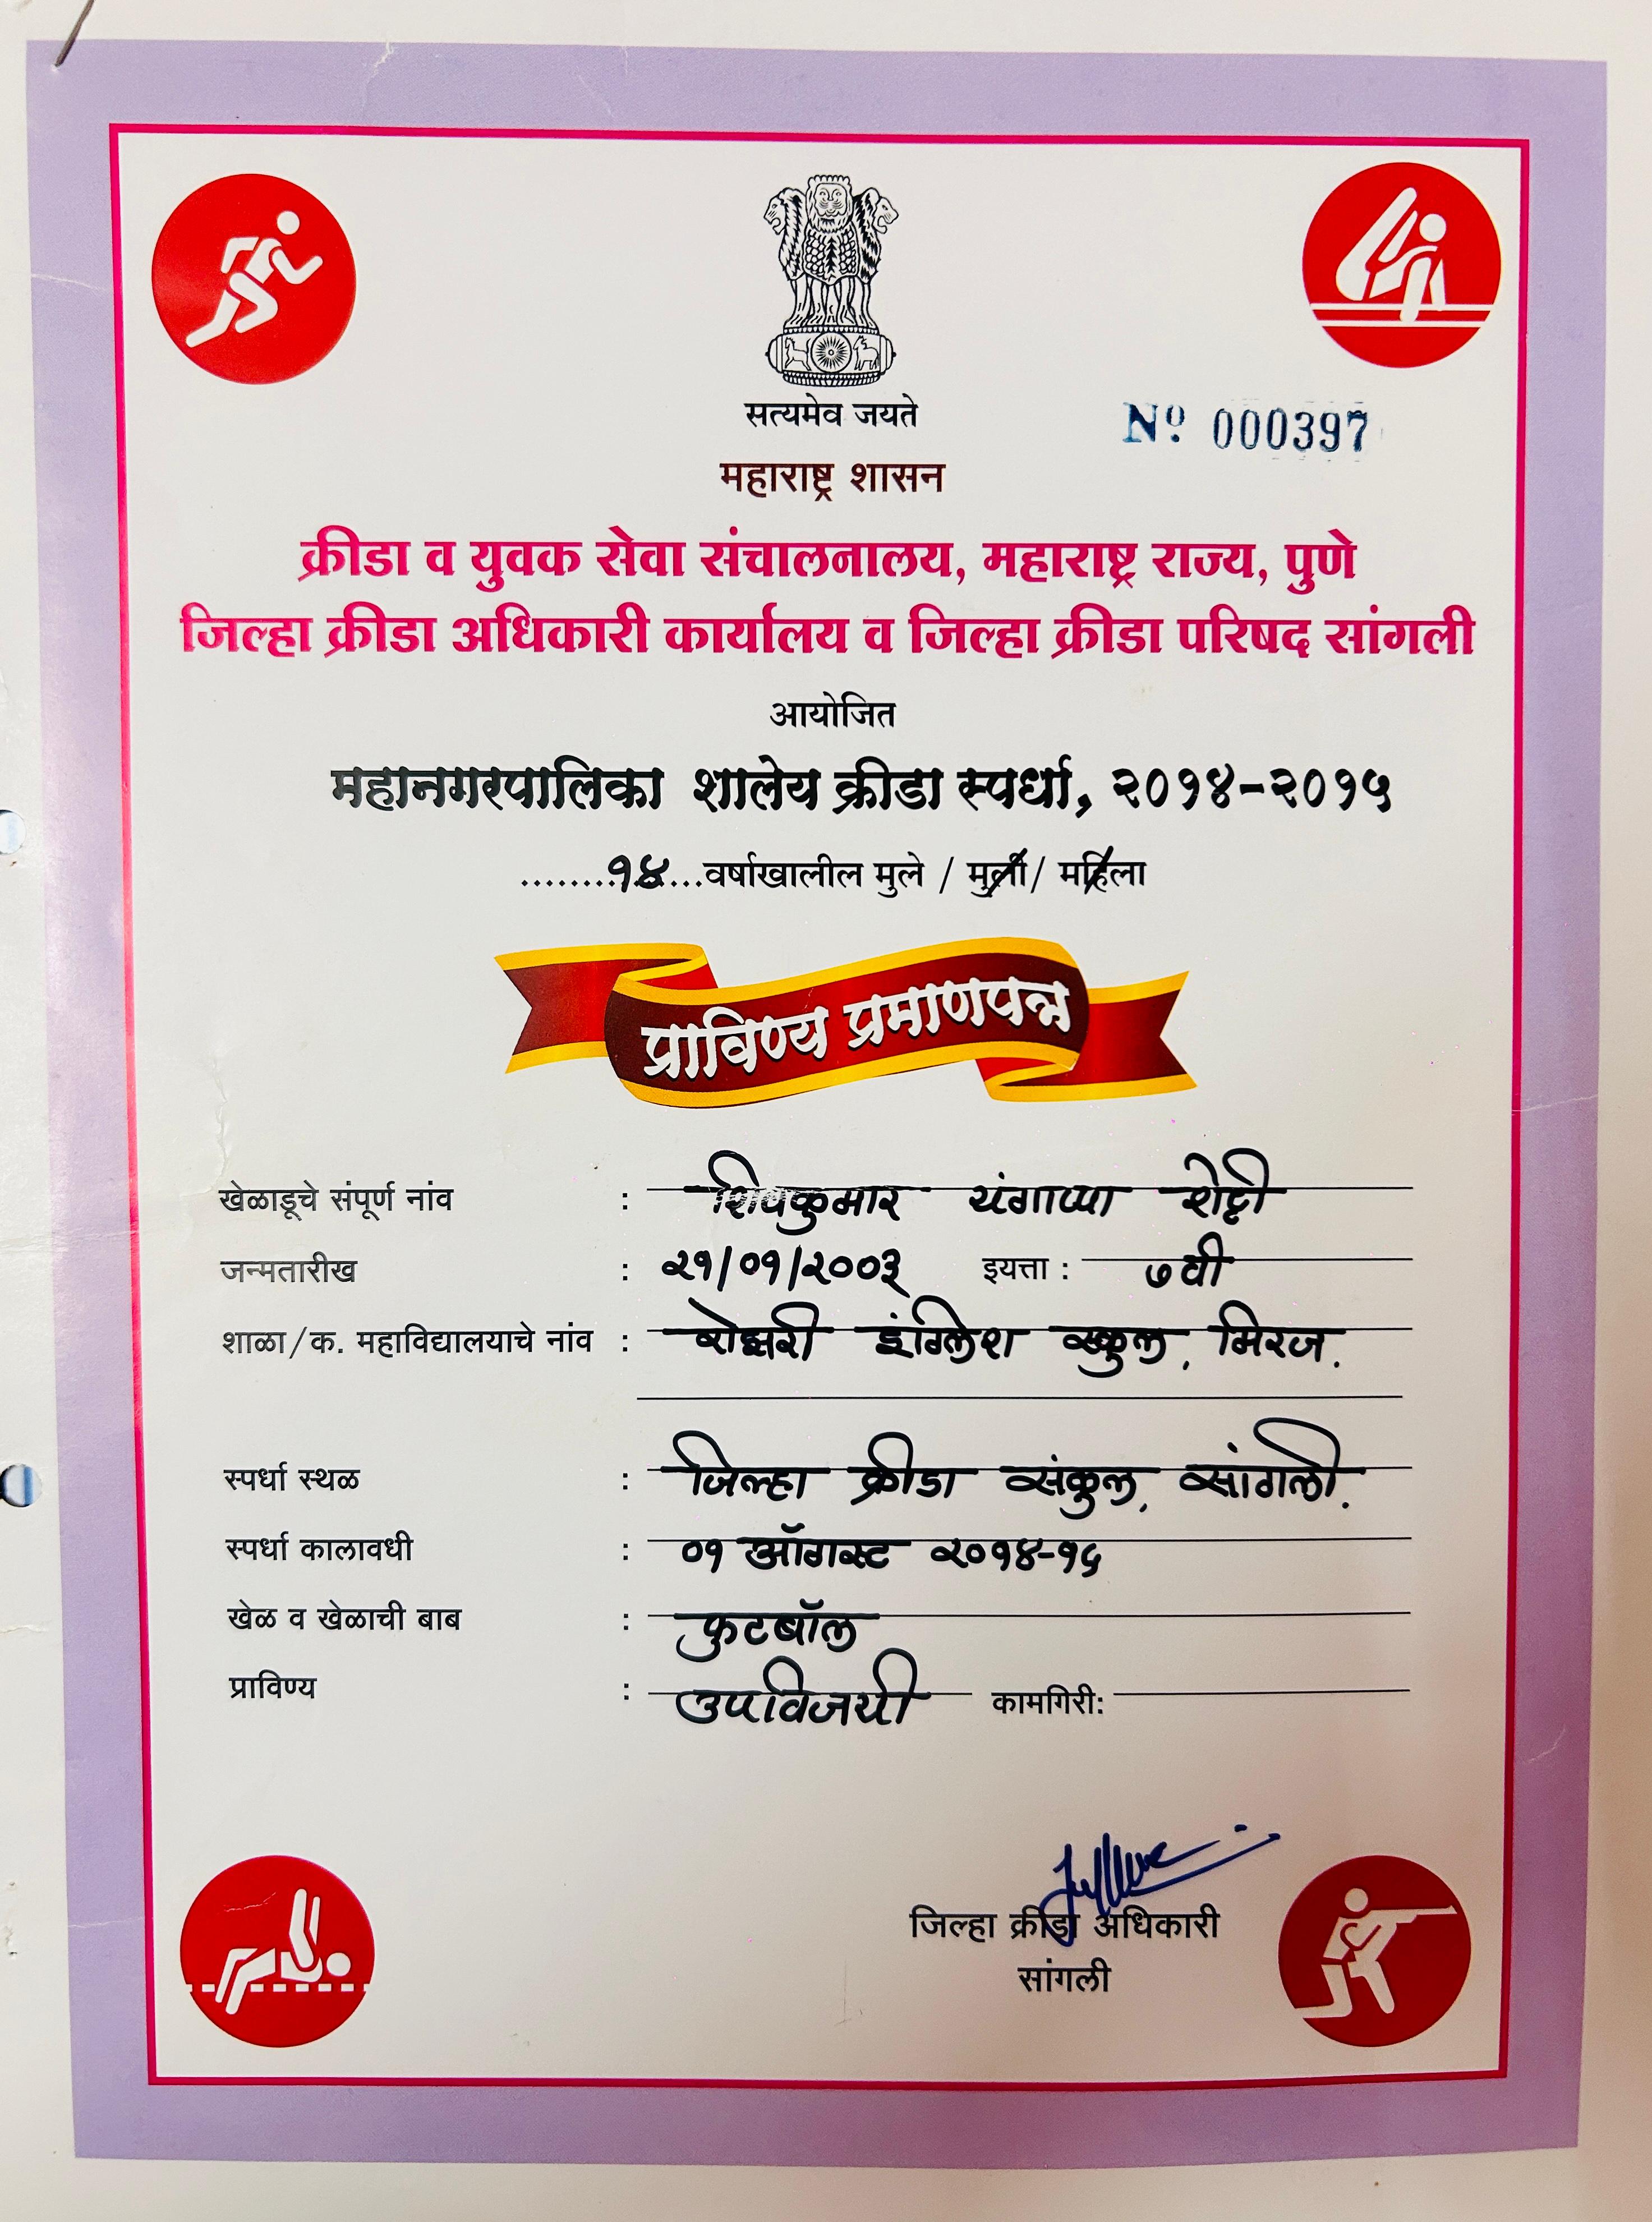 सत्यमेव जयते
Nº 000397
महाराष्ट्र शासन
क्रीडा व युवक सेवा संचालनालय, महाराष्ट्र राज्य, पुणे
जिल्हा क्रीडा अधिकारी कार्यालय व जिल्हा क्रीडा परिषद सांगली
आयोजित
महानगरपालिका शालेय क्रीडा स्पर्धा, २०१४-२०१५
........१४...वर्षाखालील मुले / मुली / महिला
प्राविण्य प्रमाणपत्र
खेळाडूचे संपूर्ण नांव : शिवकुमार यंगाप्पा शेट्टी
जन्मतारीख : २१/०१/२००३ इयत्ता : ७वी
शाळा/क. महाविद्यालयाचे नांव : रोझरी इंग्लिश स्कुल, मिरज.
स्पर्धा स्थळ : जिल्हा क्रीडा संकुल, सांगली.
स्पर्धा कालावधी : ०१ ऑगस्ट २०१४-१५
खेळ व खेळाची बाब : फुटबॉल
प्राविण्य : उपविजयी कामगिरी:
जिल्हा क्रीडा अधिकारी
सांगली